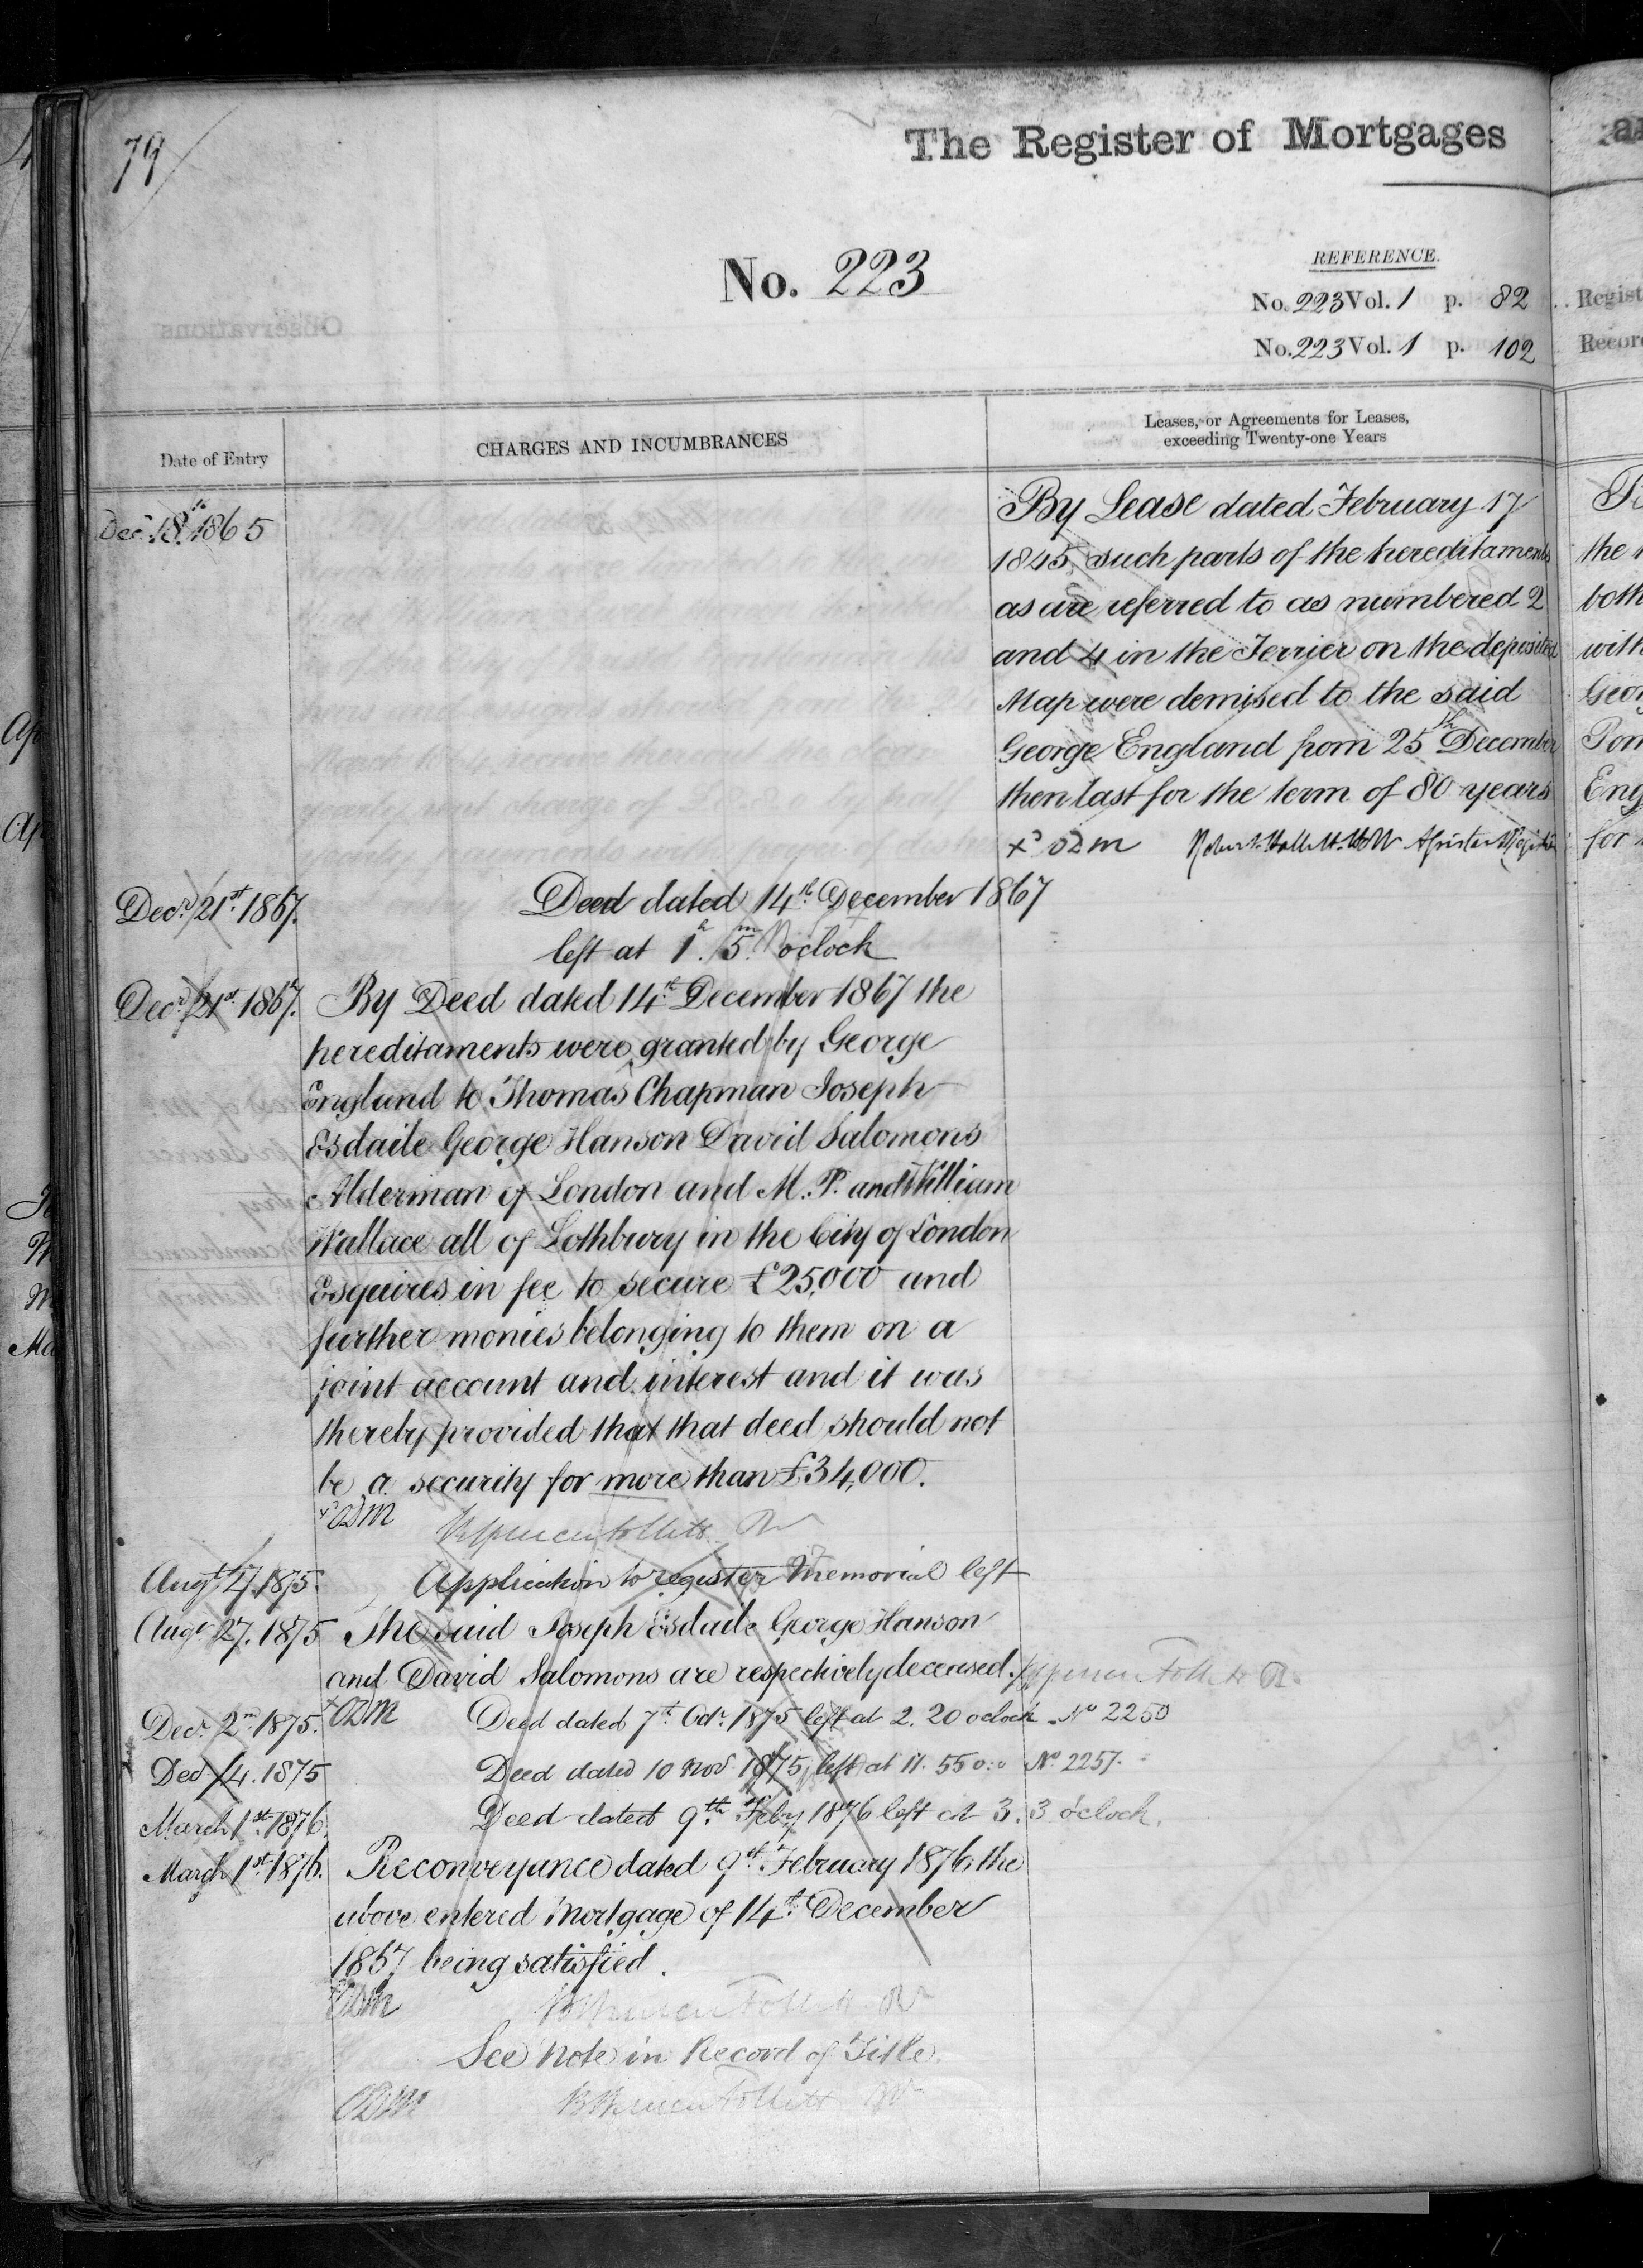 79
The Register of Mortgages
No. 223
REFERENCE.
No. 223 Vol. 1 p. 82
No. 223 Vol. 1 p. 102
Date of Entry
CHARGES AND INCUMBRANCES
Leases, or Agreements for Leases,
exceeding Twenty-one Years
Decr. 18th 1865
By Lease dated February 17
1845 such parts of the hereditaments
as are referred to as numbered 2
and 4 in the Terrier on the deposited
Map were demised to the said
George England from 25th December
then last for the term of 80 years
Decr. 21st 1867. Deed dated 14th December 1867
left at 1h. 5m. oclock
Decr. 21st 1867. By Deed dated 14th December 1867 the
hereditaments were granted by George
England to Thomas Chapman Joseph
Esdaile George Hanson David Salomons
Alderman of London and M.P. and William
Wallace all of Lothbury in the City of London
Esquires in fee to secure £25,000 and
further monies belonging to them on a
joint account and interest and it was
thereby provided that that deed should not
be a security for more than £34,000.
Application to register Memorial left
Augt 27. 1875 The said Joseph Esdaile George Hanson
and David Salomons are respectively deceased.
Decr. 2nd 1875. Deed dated 7th Octr. 1875 left at 2.20 oclock No 2250
Decr 4. 1875 Deed dated 10 Nov 1875 left at 11.55 No 2257.
March 1st 1876. Deed dated 9th Feby 1876 left at 3.3 o'clock.
March 1st 1876. Reconveyance dated 9th February 1876 the
above entered Mortgage of 14th December
1867 being satisfied.
See note in Record of Title.